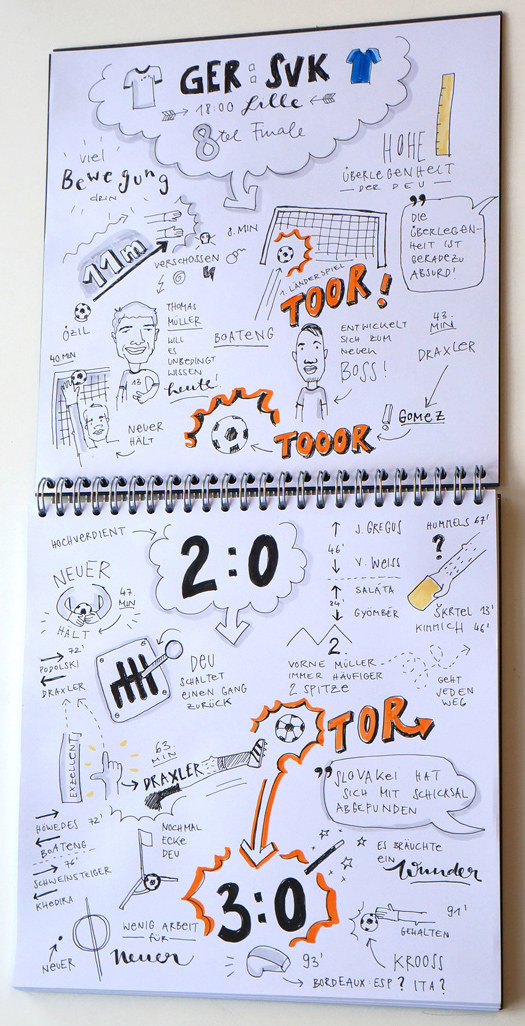 GER : SVK
18:00 Lille
8tel Finale
HOHE
ÜBERLEGENHEIT
DER DEU
viel
Bewegung
drin
"DIE
ÜBERLEGEN-
HEIT IST
GERADEZU
ABSURD!
11m
VERSCHOSSEN
8. MIN
1. LÄNDERSPIEL
TOOR!
ÖZIL
THOMAS
MÜLLER
WILL
ES
UNBEDINGT
WISSEN
heute!
13
BOATENG
ENTWICKELT
SICH ZUM
NEUEN
BOSS!
43.
MIN
DRAXLER
GOMEZ
TOOOR
40. MIN
NEUER
HÄLT
HOCHVERDIENT
2:0
NEUER
47.
MIN
HÄLT
J. GREGUS
46'
V. WEISS
SALÁTA
24'
GYÖMBÉR
HUMMELS 67'
?
ŠKRTEL 13'
KIMMICH 46'
72'
PODOLSKI
DRAXLER
DEU
SCHALTET
EINEN GANG
ZURÜCK
2
VORNE MÜLLER
IMMER HÄUFIGER
2 SPITZE
GEHT
JEDEN
WEG
TOR
EXZELLENT
63.
MIN
DRAXLER
"SLOVAKEI HAT
SICH MIT SCHICKSAL
ABGEFUNDEN
HÖWEDES 72'
BOATENG
76'
SCHWEINSTEIGER
KHEDIRA
NOCHMAL
ECKE
DEU
ES BRÄUCHTE
EIN
Wunder
3:0
WENIG ARBEIT
FÜR
Neuer
NEUER
91'
GEHALTEN
KROOSS
93'
BORDEAUX: ESP? ITA?